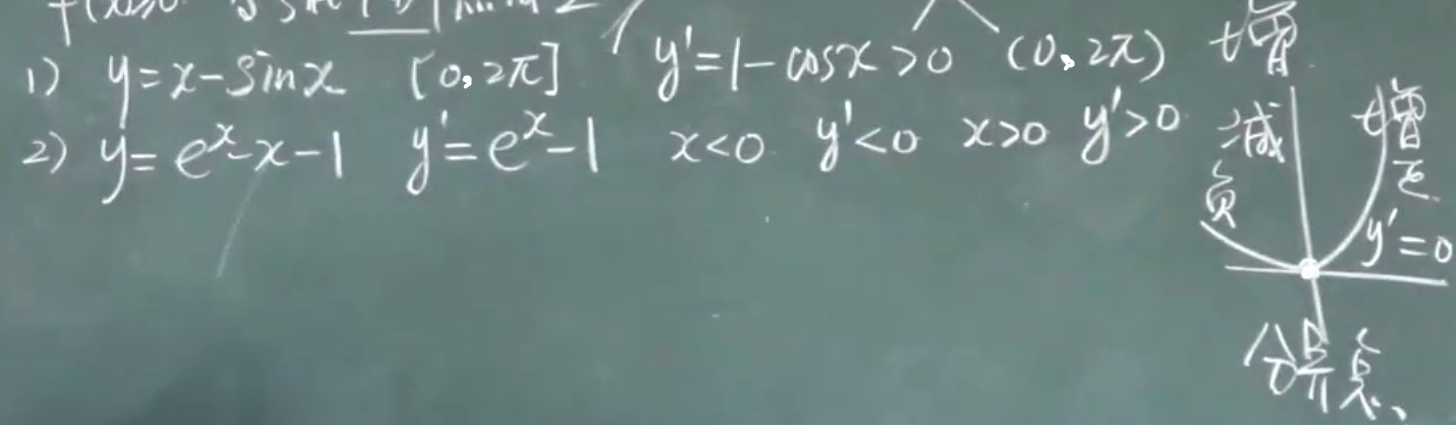 1) y=x-sinx [0,2π] y'=1-cosx>0 (0,2π) 增
2) y=e^x-x-1 y'=e^x-1 x<0 y'<0 x>0 y'>0 减 增
负 正
y'=0
分界点